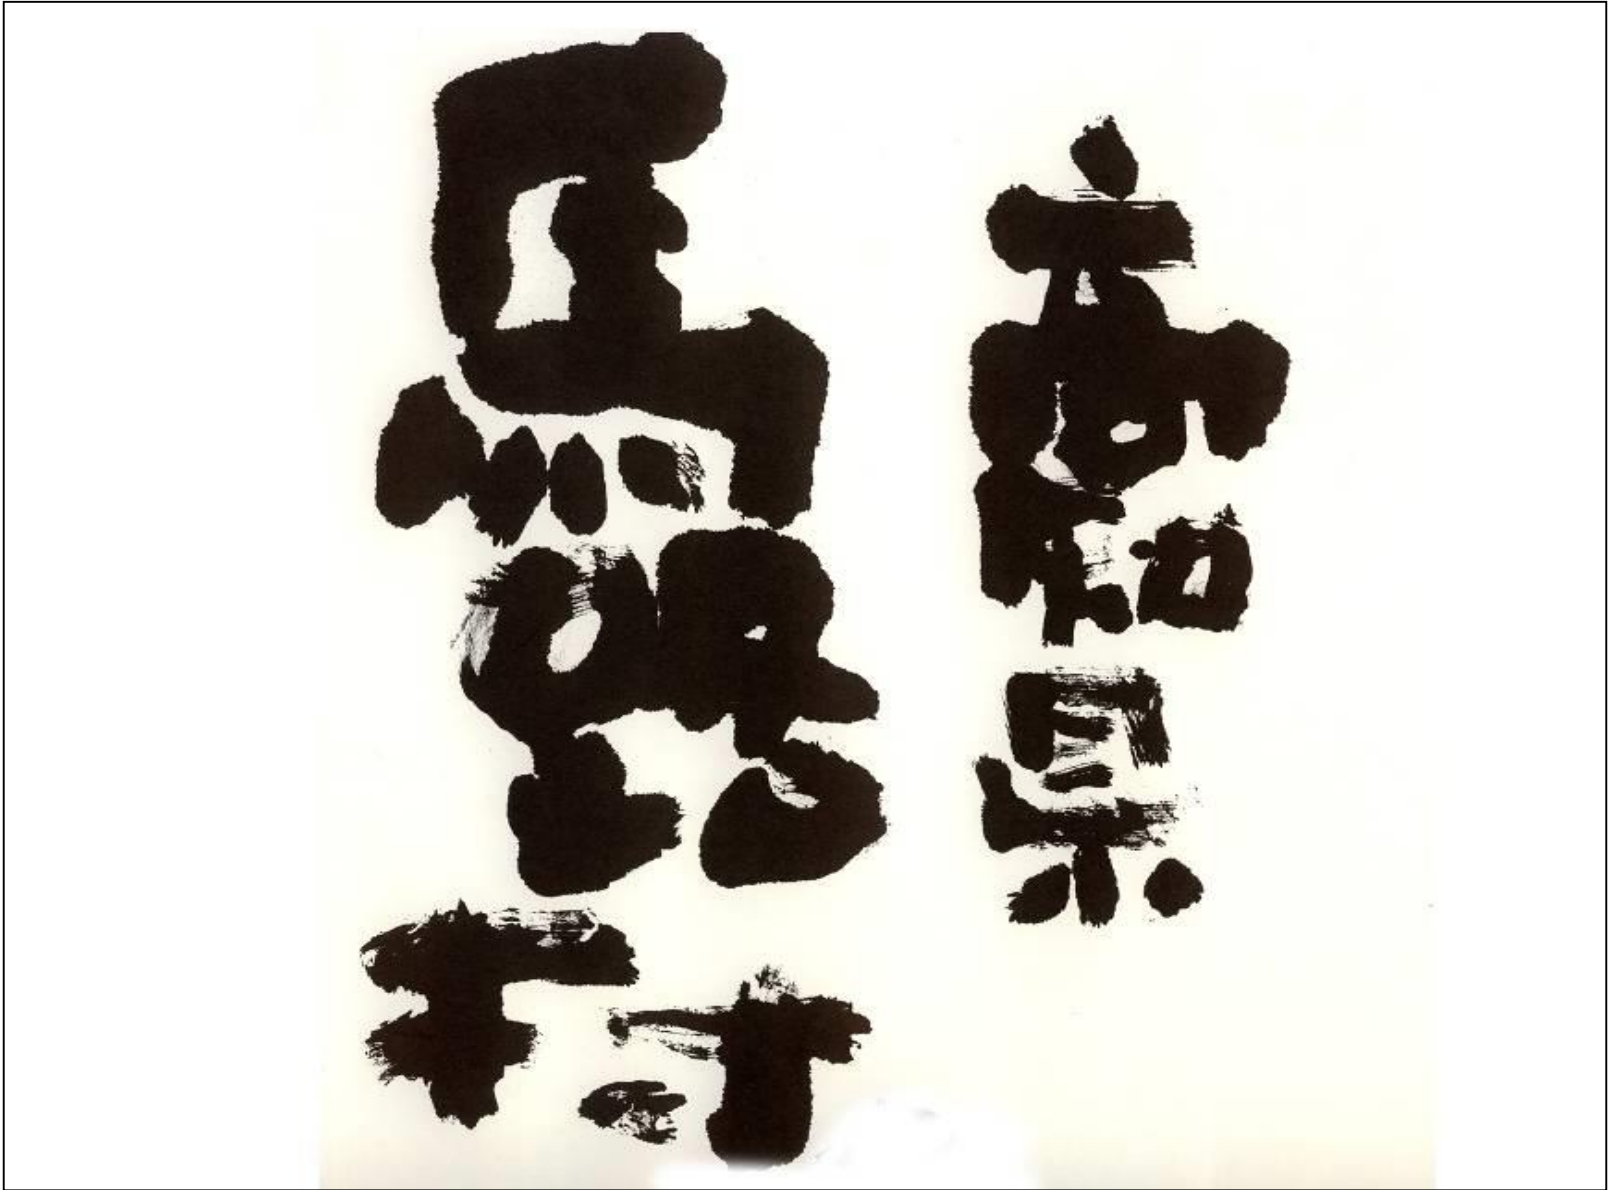 高知県
馬路村